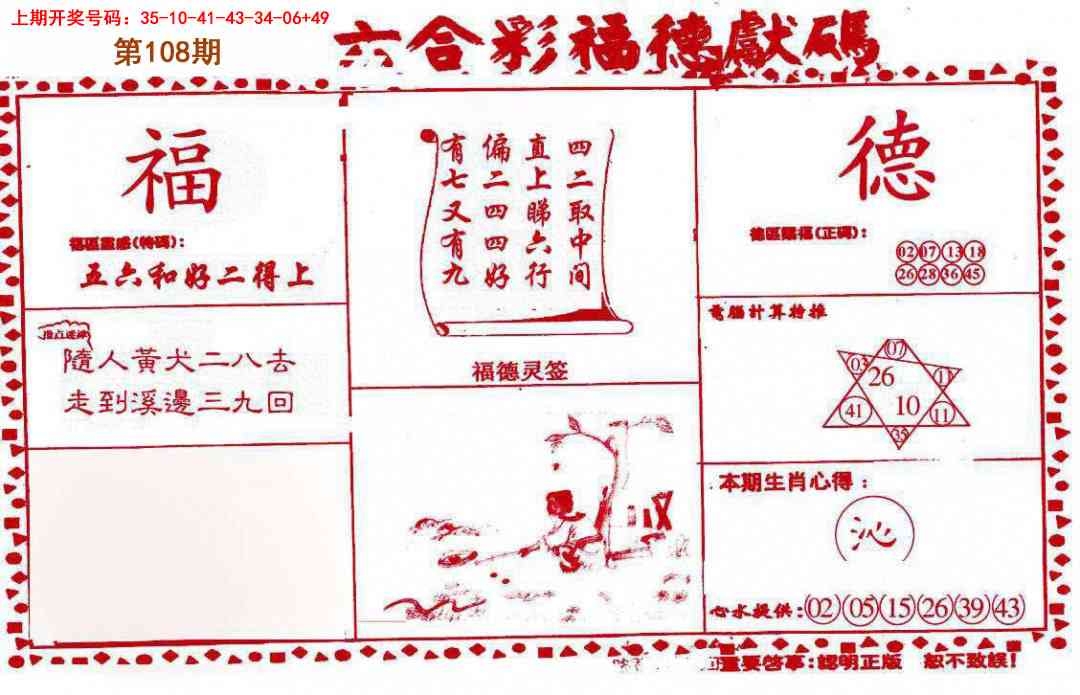 上期开奖号码：35-10-41-43-34-06+49
第108期
六合彩福德獻碼
福
福區靈感(特碼)：
五六和好二得上
隨人黃犬二八去
走到溪邊三九回
四二取中间
直上睇六行
偏二四四好
有七又有九
福德灵签
德
德區賜福(正碼)：
02 07 13 18
26 28 36 45
電腦計算特推
07
03 26 11
41 10 11
35
本期生肖心得：
沁
心水提供：02 05 15 26 39 43
重要啓事：認明正版 恕不致誤！